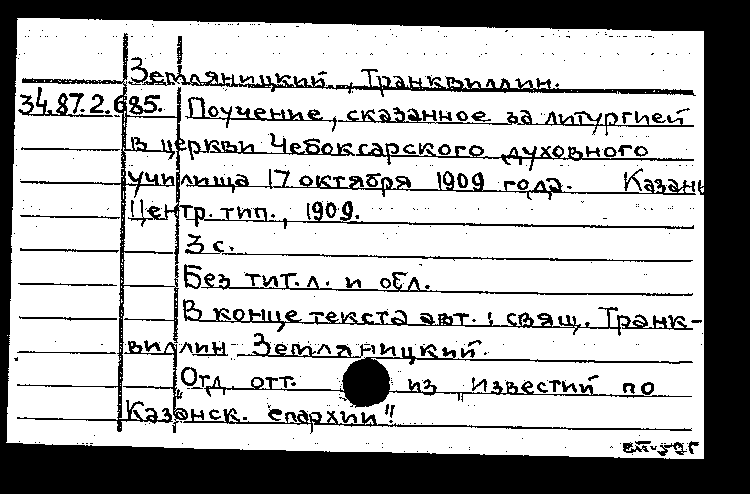 Земляницкий, Транквиллин.
34.87.2.685. Поучение, сказанное за литургией
в церкви Чебоксарского духовного
училища 17 октября 1909 года. Казань
Центр. тип., 1909.
3 с.
Без тит. л. и обл.
В конце текста авт.: свящ. Транк-
виллин Земляницкий.
"Отд. отт. из "Известий по
Казанск. епархии"!